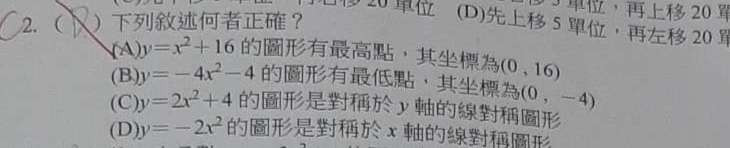 20 單位 (D)先上移 5 單位，再左移 20 單
單位，再上移 20 單
C 2. ( ) 下列敘述何者正確？
(A)y=x²+16 的圖形有最高點，其坐標為(0 , 16)
(B)y=－4x²－4 的圖形有最低點，其坐標為(0 , －4)
(C)y=2x²+4 的圖形是對稱於 y 軸的線對稱圖形
(D)y=－2x² 的圖形是對稱於 x 軸的線對稱圖形